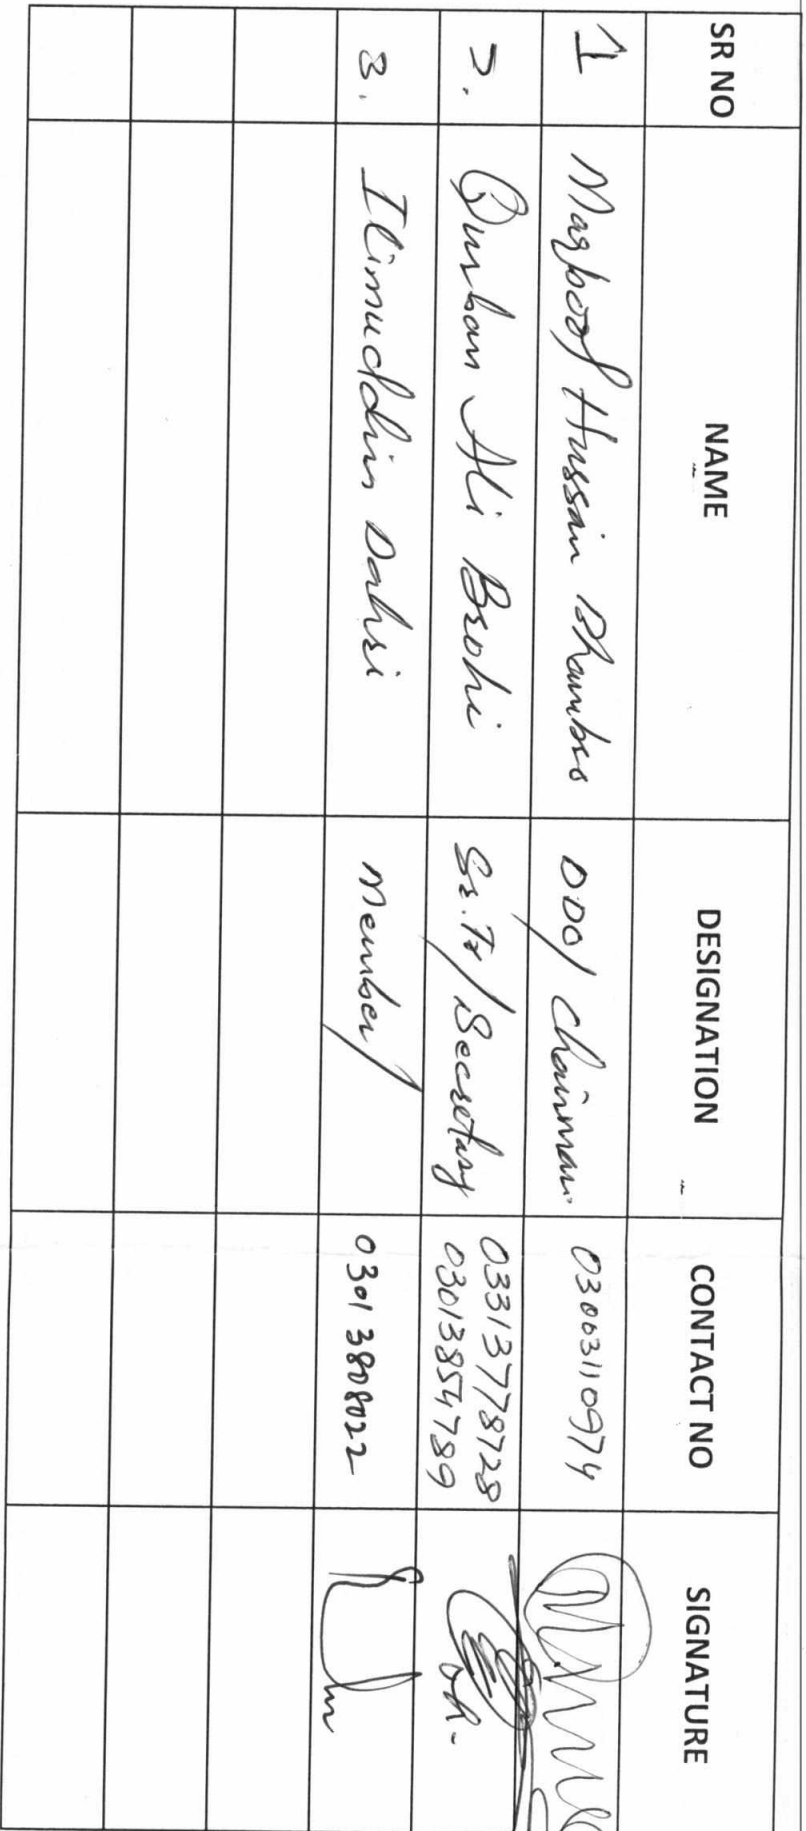 SR NO NAME DESIGNATION CONTACT NO SIGNATURE
1 Maqbool Hussain Bhambro DDO/ Chairman 03003110974
2. Qurban Ali Brohi Sr. Tr/Secretary 03313778728
03013854789
3. Ilimuddin Dahri Member/ 03013808022